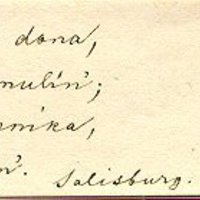 dona,
mulin';
nnika,
n'. Salisburg.